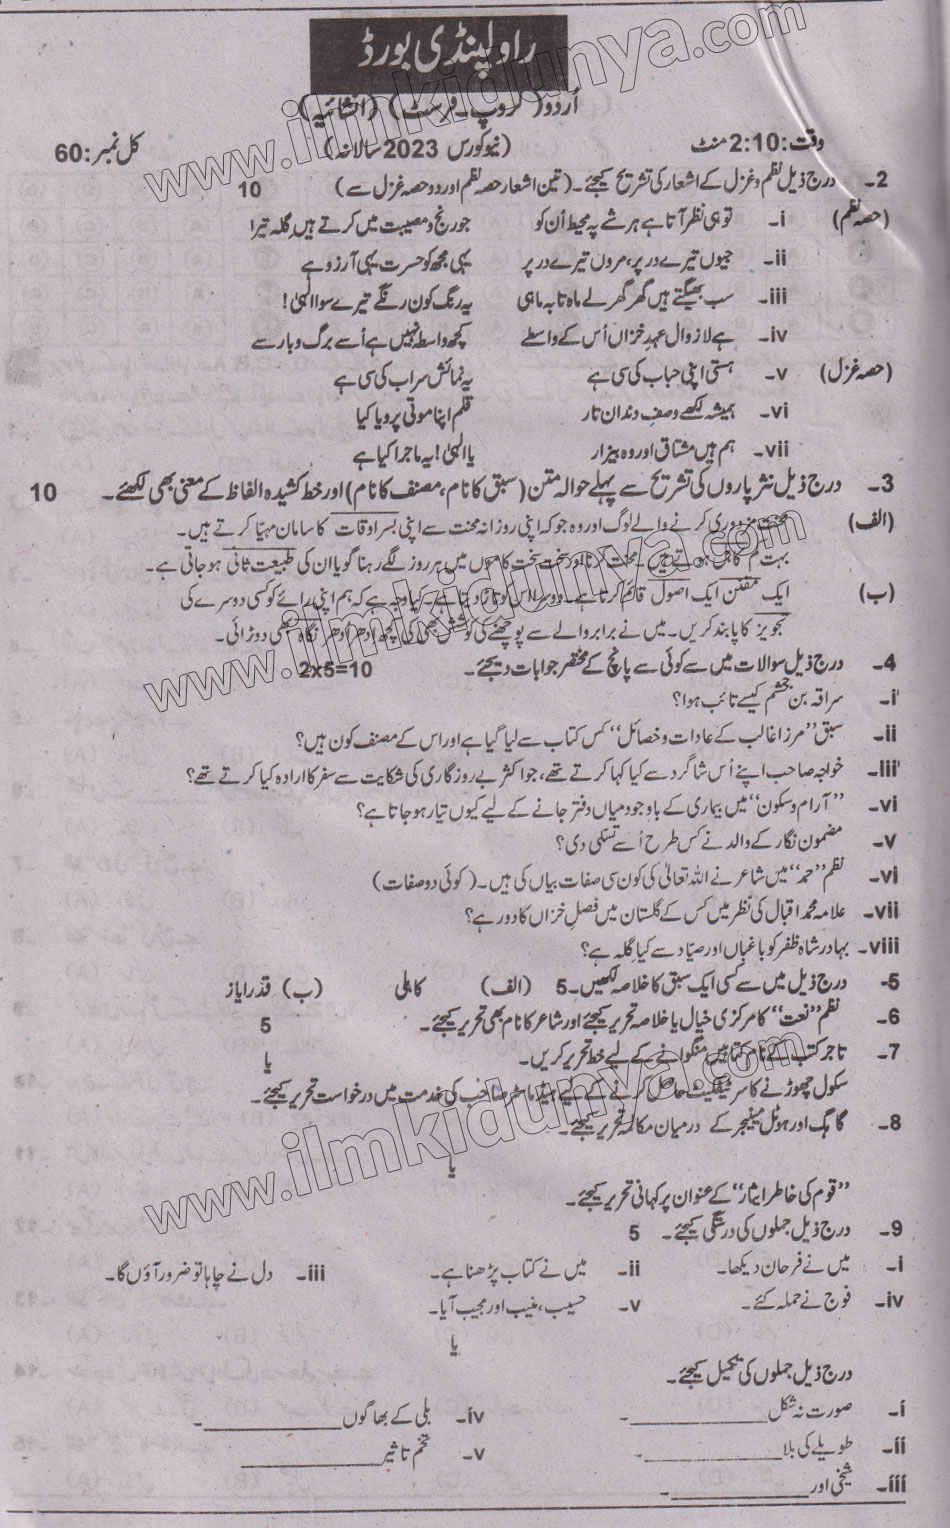 راولپنڈی بورڈ
اُردو (گروپ۔ فرسٹ) (انشائیہ)
وقت: 2:10 منٹ (نیوکورس 2023 سالانہ) کل نمبر: 60
2۔ درج ذیل نظم و غزل کے اشعار کی تشریح کیجئے۔ (تین اشعار حصہ نظم اور دو حصہ غزل سے) 10
(حصہ نظم) i۔ تو ہی نظر آتا ہے ہر شے پہ محیط اُن کو جو رنج و مصیبت میں کرتے ہیں گلہ تیرا
ii۔ جیوں تیرے در پر، مروں تیرے در پر یہی مجھ کو حسرت یہی آرزو ہے
iii۔ سب بھیگتے ہیں گھر گھر لے ماہ تا بہ ماہی یہ رنگ کون رنگے تیرے سوا الٰہی!
iv۔ ہے لازوال عہدِ خزاں اُس کے واسطے کچھ واسطہ نہیں ہے اُسے برگ و بار سے
(حصہ غزل) v۔ ہستی اپنی حباب کی سی ہے یہ نمائش سراب کی سی ہے
vi۔ ہمیشہ لکھے وصفِ دندان تار قلم اپنا موتی پرویا کیا
vii۔ ہم ہیں مشتاق اور وہ بیزار یا الٰہی! یہ ماجرا کیا ہے
3۔ درج ذیل نثر پاروں کی تشریح سے پہلے حوالہ متن (سبق کا نام، مصنف کا نام) اور خط کشیدہ الفاظ کے معنی بھی لکھئے۔ 10
(الف) محنت مزدوری کرنے والے لوگ اور وہ جو کہ اپنی روزانہ محنت سے اپنی بسر اوقات کا سامان مہیا کرتے ہیں۔
بہت کم کاہل ہوتے ہیں۔ محنت کرنا اور سخت سخت کاموں میں ہر روز لگے رہنا گویا ان کی طبیعت ثانی ہو جاتی ہے۔
(ب) ایک مقنن ایک اصول قائم کرتا ہے۔ دوسرا اس کو توڑ دیتا ہے۔ کیا وجہ ہے کہ ہم اپنی رائے کو کسی دوسرے کی
تجویز کا پابند کریں۔ میں نے برابر والے سے پوچھنے کی کوشش بھی کی کچھ ادھر اُدھر نگاہ بھی دوڑائی۔
4۔ درج ذیل سوالات میں سے کوئی سے پانچ کے مختصر جوابات دیجئے۔ 2x5=10
i۔ سراقہ بن جشم کیسے تائب ہوا؟
ii۔ سبق "مرزا غالب کے عادات و خصائل" کس کتاب سے لیا گیا ہے اور اس کے مصنف کون ہیں؟
iii۔ خواجہ صاحب اپنے اُس شاگرد سے کیا کہا کرتے تھے، جو اکثر بے روزگاری کی شکایت سے سفر کا ارادہ کیا کرتے تھے؟
vi۔ "آرام و سکون" میں بیماری کے باوجود میاں دفتر جانے کے لیے کیوں تیار ہو جاتا ہے؟
v۔ مضمون نگار کے والد نے کس طرح اُسے تسلی دی؟
vi۔ نظم "حمد" میں شاعر نے اللہ تعالیٰ کی کون سی صفات بیاں کی ہیں۔ (کوئی دو صفات)
vii۔ علامہ محمد اقبال کی نظر میں کس کے گلستان میں فصلِ خزاں کا دور ہے؟
viii۔ بہادر شاہ ظفر کو باغباں اور صیاد سے کیا گلہ ہے؟
5۔ درج ذیل میں سے کسی ایک سبق کا خلاصہ لکھیں۔ 5 (الف) کاہلی (ب) قدر ایاز
6۔ نظم "نعت" کا مرکزی خیال یا خلاصہ تحریر کیجئے اور شاعر کا نام بھی تحریر کیجئے۔ 5
7۔ تاجر کتب کے نام کتابیں منگوانے کے لیے خط تحریر کریں۔
یا
سکول چھوڑنے کا سرٹیفکیٹ حاصل کرنے کے لیے ہیڈ ماسٹر صاحب کی خدمت میں درخواست تحریر کیجئے۔
8۔ گاہک اور ہوٹل مینیجر کے درمیان مکالمہ تحریر کیجئے۔
یا
"قوم کی خاطر ایثار" کے عنوان پر کہانی تحریر کیجئے۔
9۔ درج ذیل جملوں کی درستگی کیجئے۔ 5
i۔ میں نے فرحان دیکھا۔ ii۔ میں نے کتاب پڑھنا ہے۔ iii۔ دل نے چاہا تو ضرور آؤں گا۔
iv۔ فوج نے حملہ کئے۔ v۔ حسیب، منیب اور مجیب آیا۔
یا
درج ذیل جملوں کی تکمیل کیجئے۔
i۔ صورت نہ شکل ____________۔ iv۔ بلی کے بھاگوں ____________۔
ii۔ طویلے کی بلا ____________۔ v۔ تخم تاثیر ____________۔
iii۔ شیخی اور ____________۔
www.ilmkidunya.com
www.ilmkidunya.com
www.ilmkidunya.com